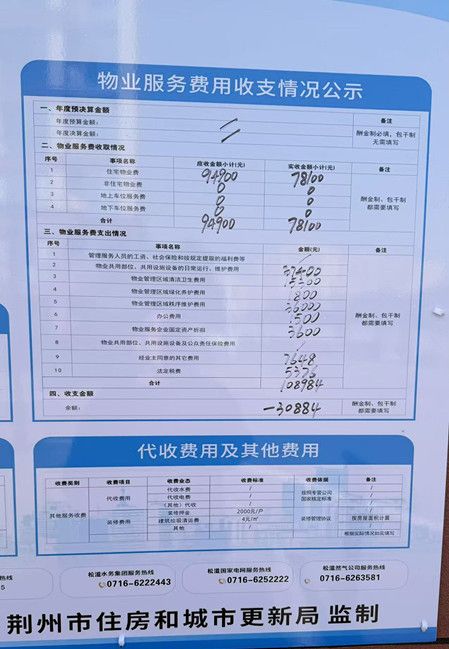 物业服务费用收支情况公示
一、年度预决算金额 备注
年度预算金额: / 酬金制必填，包干制
年度决算金额: / 无需填写
二、物业服务费收取情况
序号 事项名称 应收金额小计(元) 实收金额小计(元) 备注
1 住宅物业费 94900 78100
2 非住宅物业费 0 0 酬金制、包干制
3 地上车位服务费 0 0 都需要填写
4 地下车位服务费 0 0
合计 94900 78100
三、物业服务费支出情况
序号 事项名称 金额(元) 备注
1 管理服务人员的工资、社会保险和按规定提取的福利费等 /
2 物业共用部位、共用设施设备的日常运行、维护费用
3 物业管理区域清洁卫生费用
4 物业管理区域绿化养护费用 800
5 物业管理区域秩序维护费用 36000 酬金制、包干制
6 办公费用 1500 都需要填写
7 物业服务企业固定资产折旧 3600
8 物业共用部位、共用设施设备及公众责任保险费用 /
9 经业主同意的其它费用 7648
10 法定税费 5376
合计 108984
四、收支金额
余额: -30884 酬金制、包干制
都需要填写
代收费用及其他费用
收费类别 收费项目 收费业态 收费标准 收费依据 备注
代收费用 代收水费 / 按照专营公司 /
代收电费 / 国家核定标准 /
(其他)代收 / /
其他服务收费 装修费用 装修押金 2000元/户 装修管理协议
建筑垃圾清运费 4元/㎡ 按房屋面积计算
其他 / 根据实际情况如实填写
热线 松滋水务集团服务热线 松滋国家电网服务热线 松滋燃气公司服务热线
5 0716-6222443 0716-6252222 0716-6263581
荆州市住房和城市更新局 监制